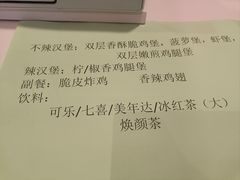 不辣汉堡：双层香酥脆鸡堡，菠萝堡，虾堡，
双层嫩煎鸡腿堡
辣汉堡：柠/椒香鸡腿堡
副餐：脆皮炸鸡 香辣鸡翅
饮料：
可乐/七喜/美年达/冰红茶（大）
焕颜茶